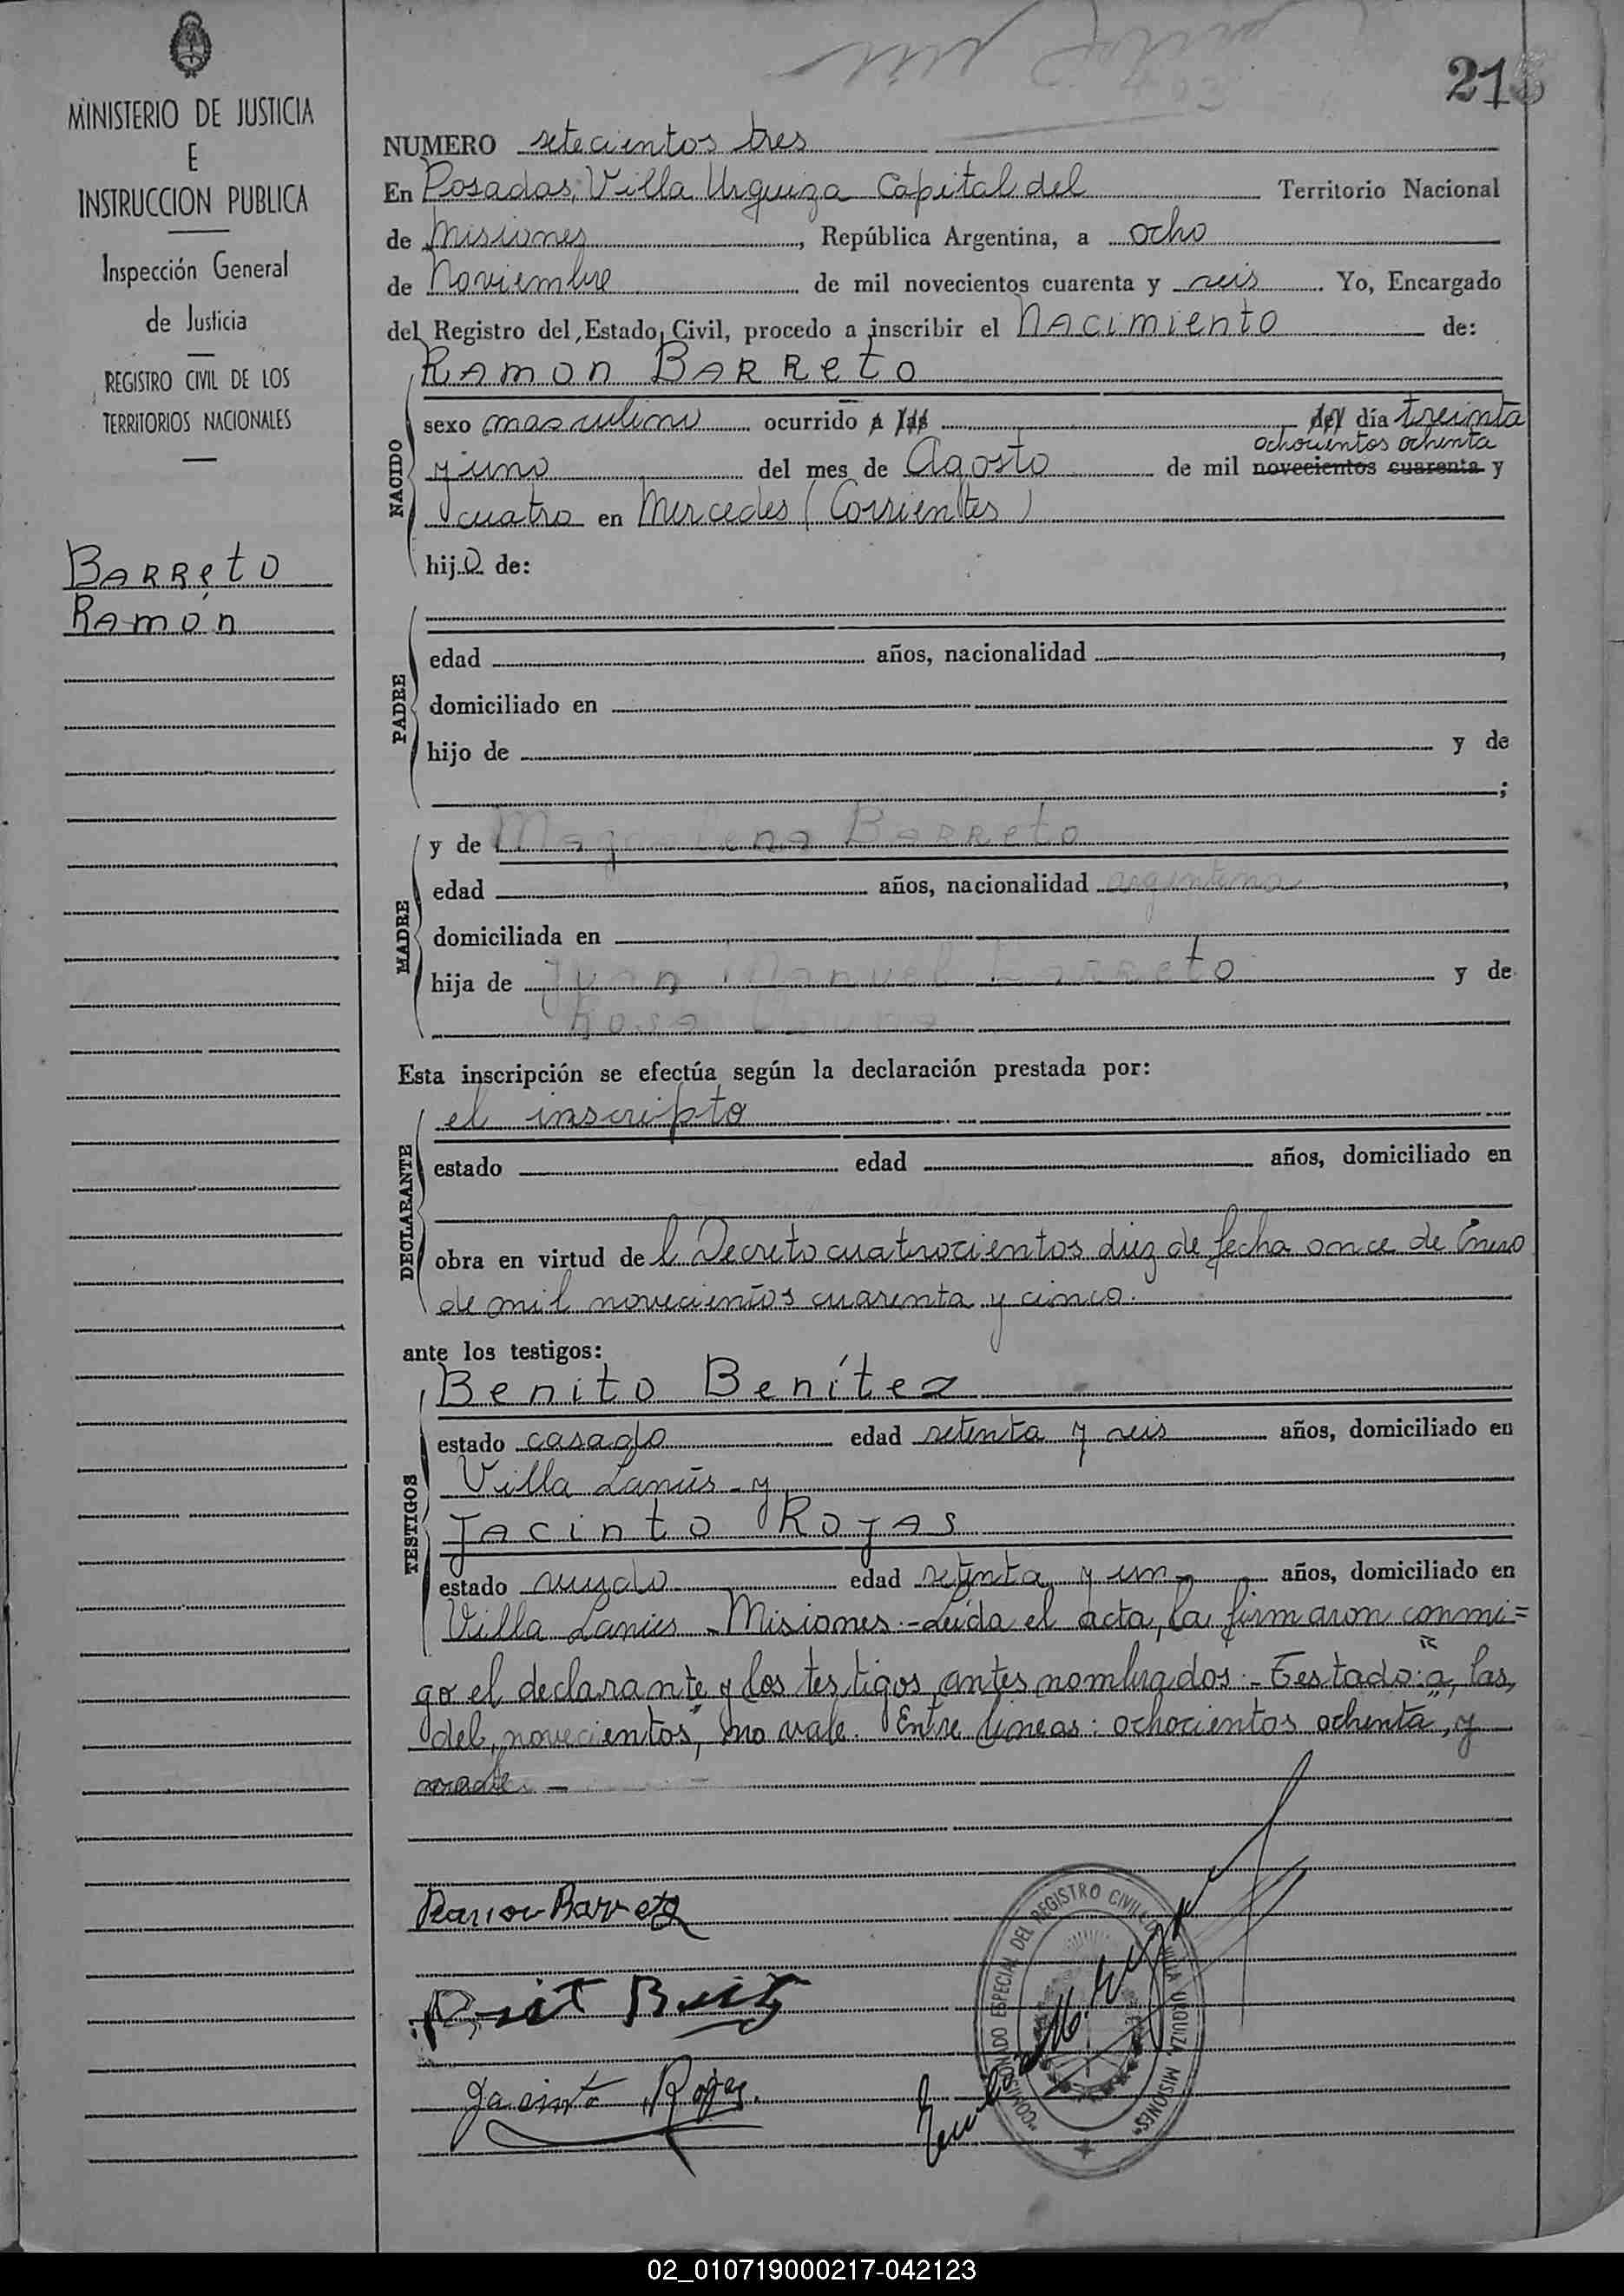 MINISTERIO DE JUSTICIA
E
INSTRUCCION PUBLICA
Inspección General
de Justicia
REGISTRO CIVIL DE LOS
TERRITORIOS NACIONALES
Barreto
Ramón
21
NUMERO setecientos tres
En Posadas, Villa Urquiza Capital del Territorio Nacional
de Misiones, República Argentina, a ocho
de Noviembre de mil novecientos cuarenta y seis. Yo, Encargado
del Registro del Estado Civil, procedo a inscribir el Nacimiento de:
NACIDO
Ramon Barreto
sexo masculino ocurrido a las del día treinta
ochocientos ochenta
y uno del mes de Agosto de mil novecientos cuarenta y
cuatro en Mercedes (Corrientes)
hijo de:
PADRE
edad años, nacionalidad ,
domiciliado en
hijo de y de
;
MADRE
y de Magdalena Barreto
edad años, nacionalidad argentina,
domiciliada en
hija de Juan Manuel Barreto y de
Rosa
Esta inscripción se efectúa según la declaración prestada por:
DECLARANTE
el inscripto
estado edad años, domiciliado en
obra en virtud del Decreto cuatrocientos diez de fecha once de Enero
de mil novecientos cuarenta y cinco.
ante los testigos:
TESTIGOS
Benito Benítez
estado casado edad setenta y seis años, domiciliado en
Villa Lanús - y
Jacinto Rojas
estado viudo edad setenta y un años, domiciliado en
Villa Lanús - Misiones.- Leída el acta, la firmaron conmi=
go el declarante y los testigos antes nombrados.- Testado: "a, las,
del, novecientos", no vale. Entre líneas: ochocientos ochenta", y
vale. -
Ramon Barreto
Jacinto Rojas.
COMISIONADO ESPECIAL DEL REGISTRO CIVIL VILLA URQUIZA MISIONES
02_010719000217-042123